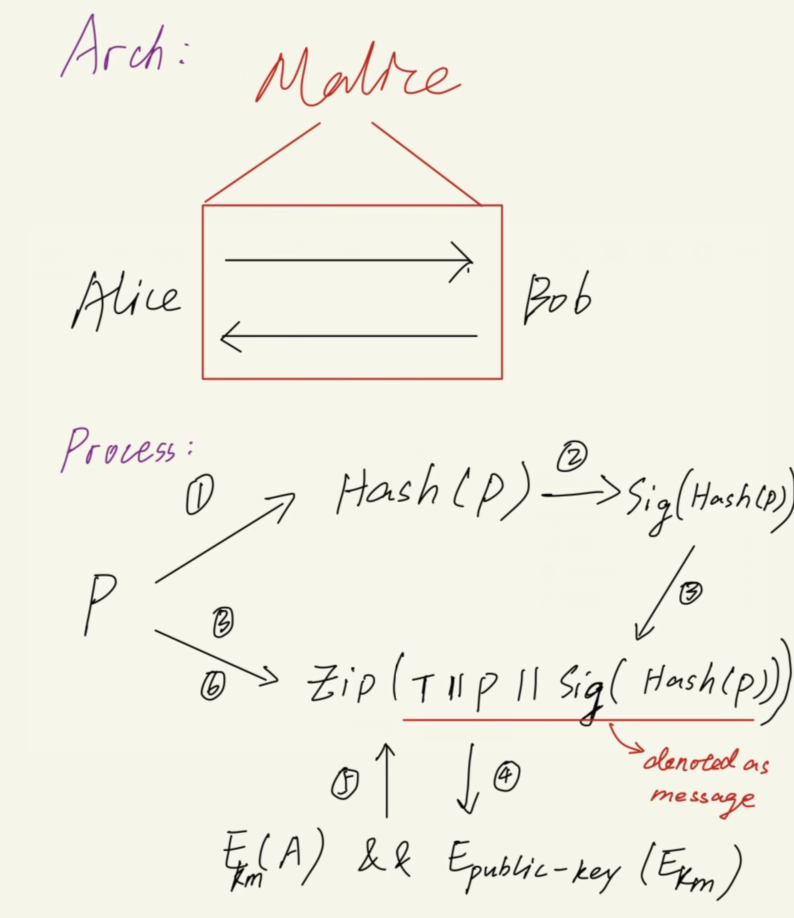 Arch:
Malice
Alice
Bob
Process:
① Hash(P) ② Sig(Hash(P))
P ③ ③
⑥ Zip(T || P || Sig(Hash(P)))
denoted as
message
⑤ ④
E_Km(A) && E_public-key(E_Km)